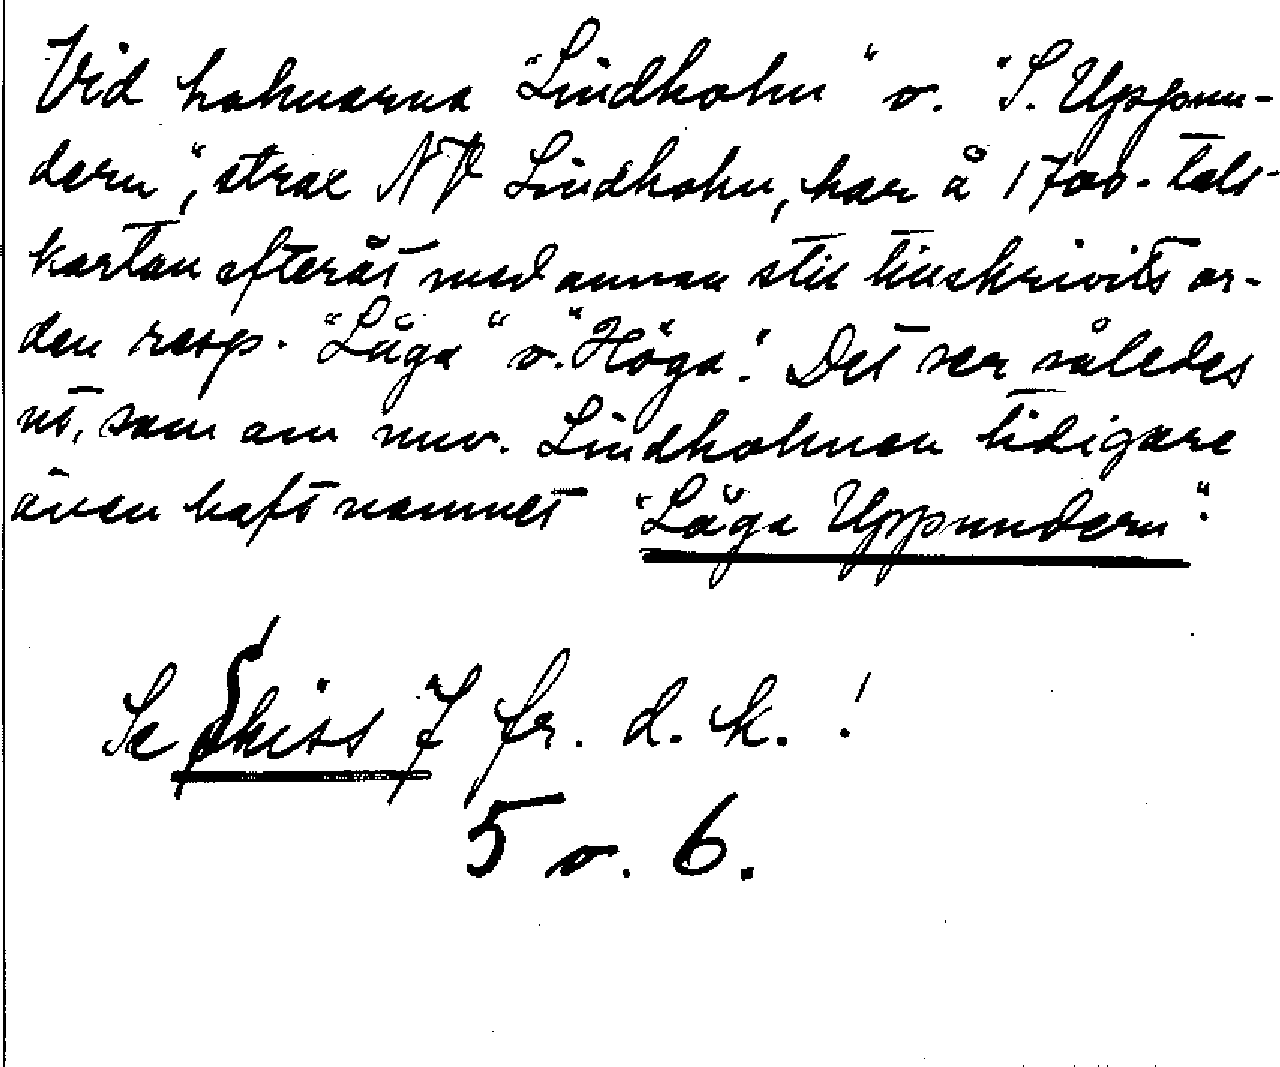 Vid holmarna "Lindholm" o. "S. Uppun-
dern", strax NV Lindholm, har å 1700-tals-
kartan efteråt med annan stil tillskrivits or-
den resp. "Låga" o. "Höga". Det ser således
ut, som om nuv. Lindholmen tidigare
även haft namnet "Låga Uppundern".
Se Skiss 7 fr. d. k. !
5 o. 6.